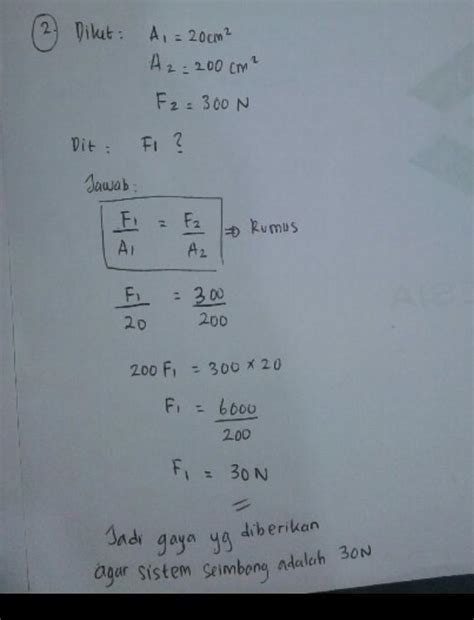 2 Diket : A₁ = 20 cm²
A₂ = 200 cm²
F₂ = 300 N
Dit : F₁ ?
Jawab :
F₁/A₁ = F₂/A₂ ⇒ Rumus
F₁/20 = 300/200
200 F₁ = 300 × 20
F₁ = 6000/200
F₁ = 30 N
Jadi gaya yg diberikan
agar sistem seimbang adalah 30N